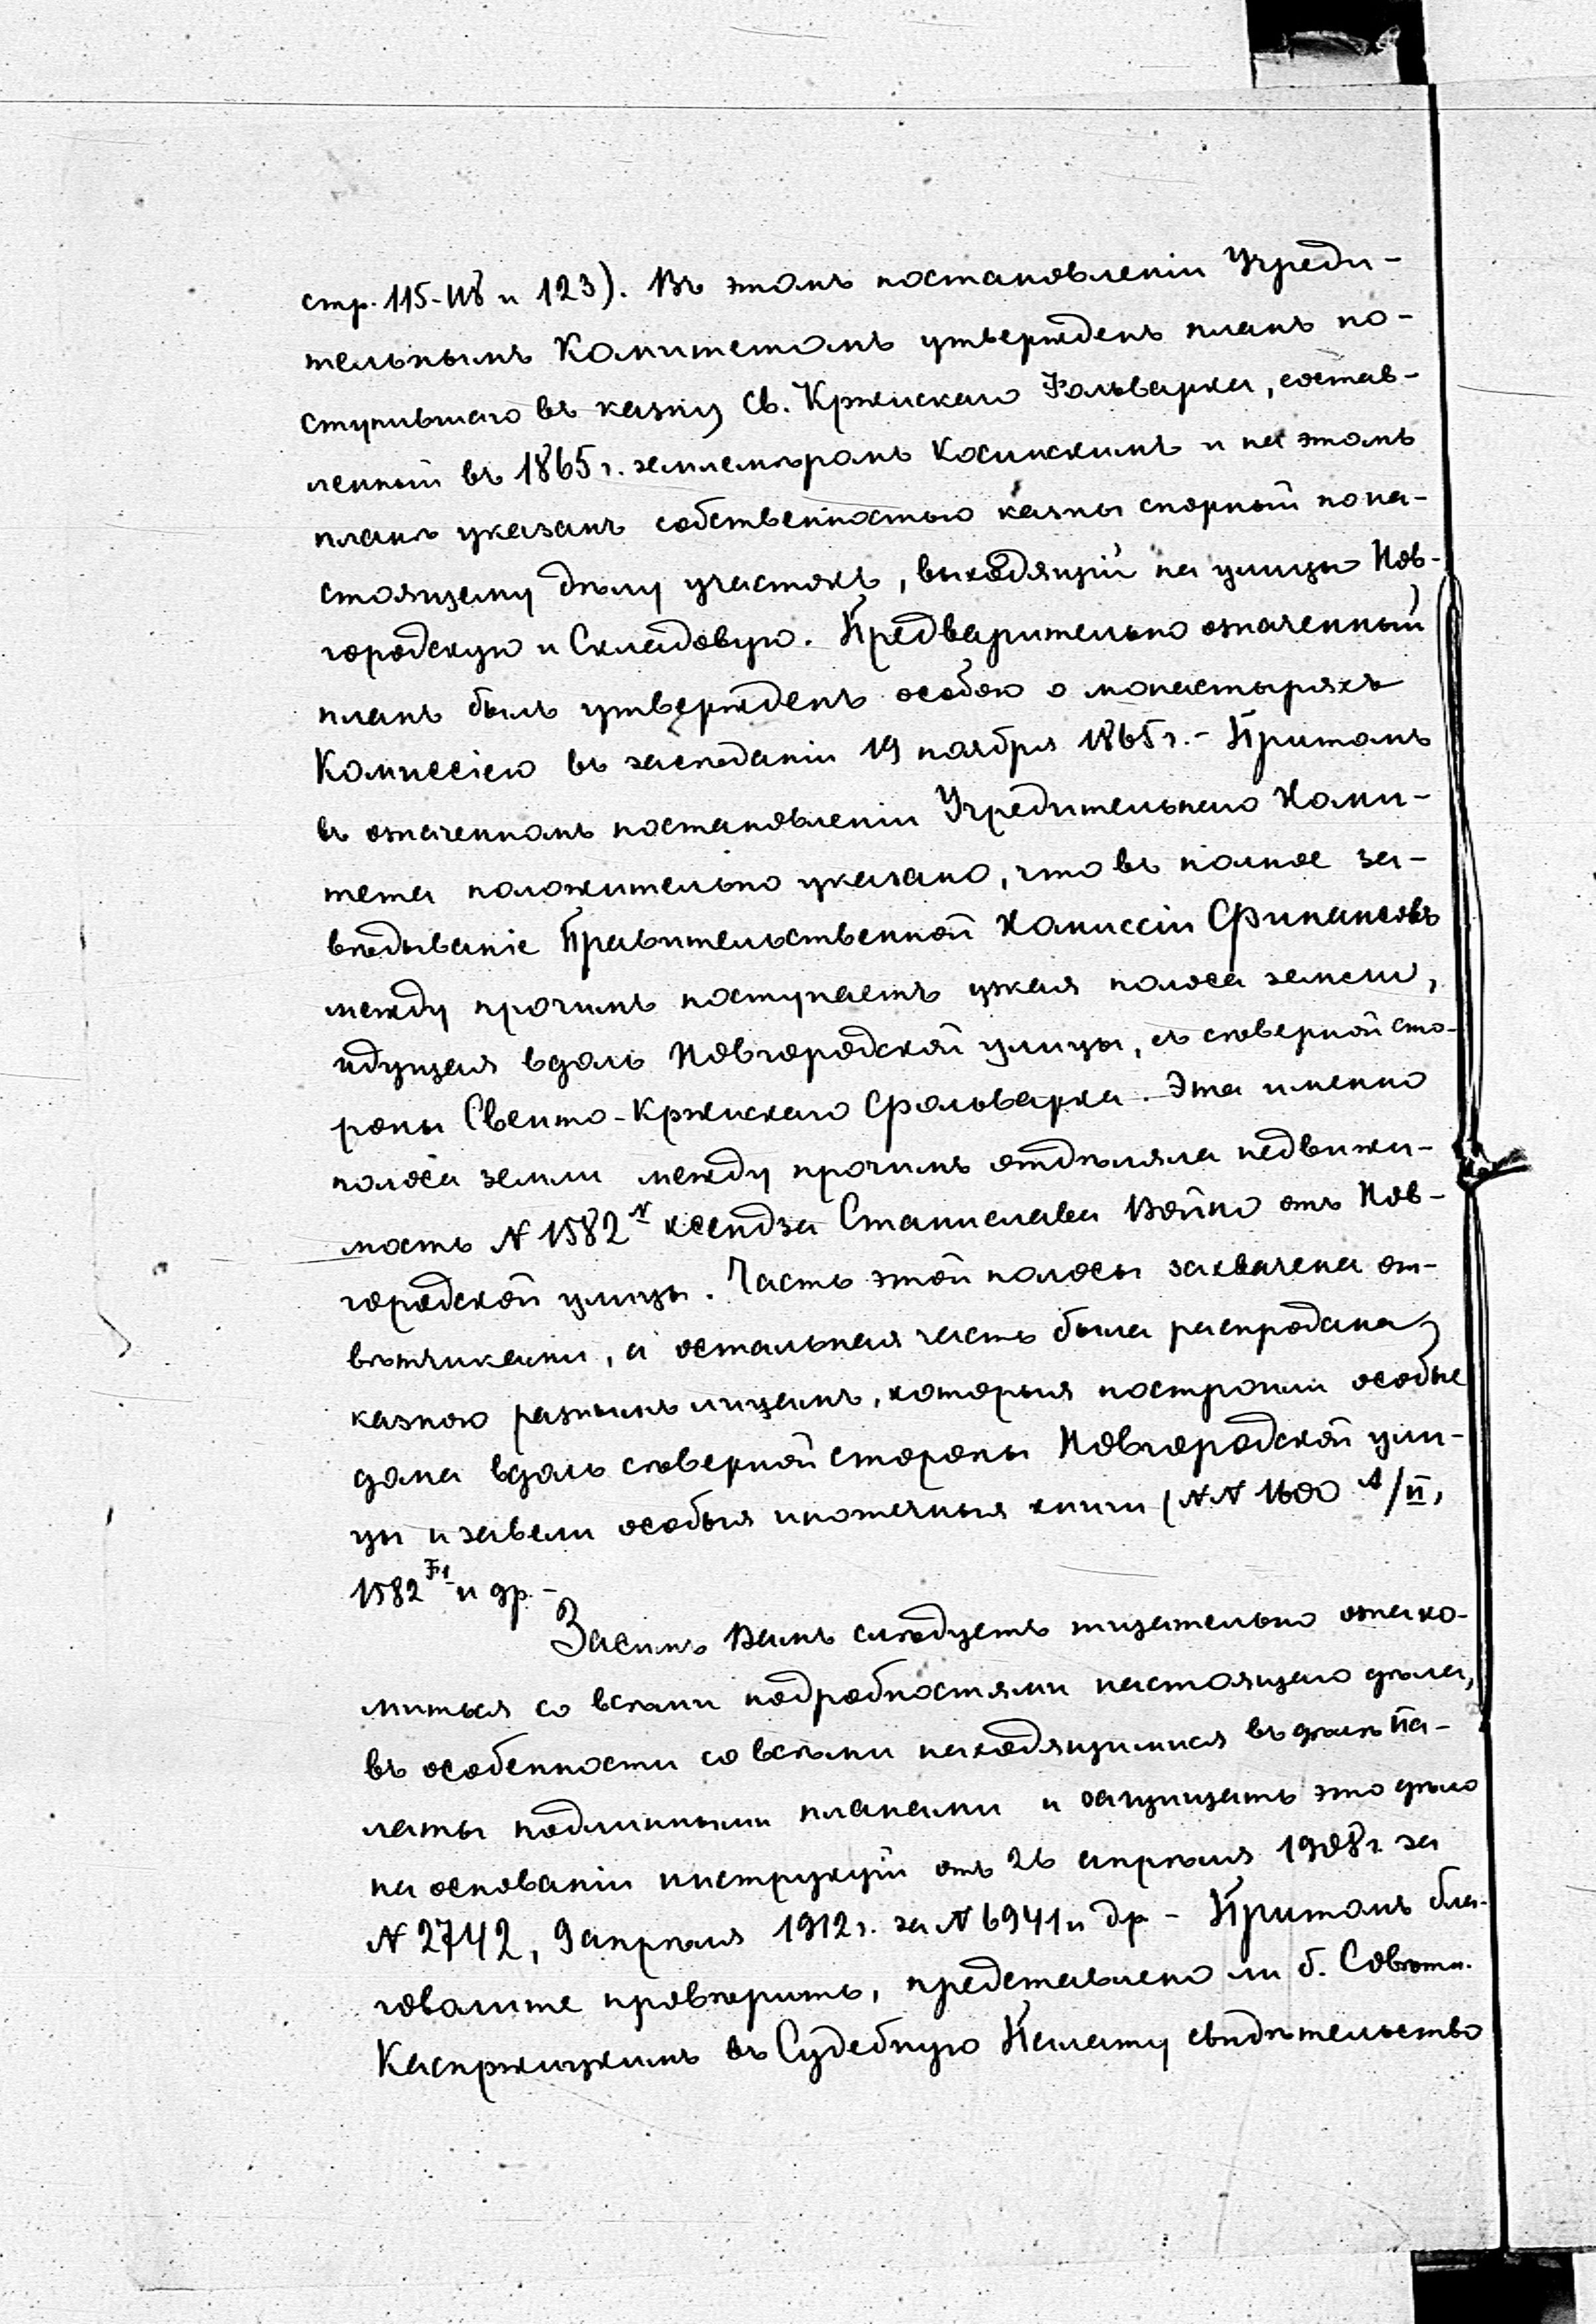 стр. 115-118 и 123). Въ этомъ постановленіи Учреди-
тельнымъ Комитетомъ утвержденъ планъ по-
ступившаго въ казну Св. Кржискаго Фольварка, состав-
ленный въ 1865 г. землемѣромъ Косинскимъ и на этомъ
планѣ указанъ собственностью казны спорный по на-
стоящему дѣлу участокъ, выходящій на улицы Нов-
городскую и Складовую. Предварительно означенный
планъ былъ утвержденъ особою о монастыряхъ
Комиссіею въ засѣданіи 19 ноября 1865 г. - Притомъ
въ означенномъ постановленіи Учредительнаго Коми-
тета положительно указано, что въ полное за-
вѣдываніе Правительственной Комиссіи Финансовъ
между прочимъ поступаетъ узкая полоса земли,
идущая вдоль Новгородской улицы, съ сѣверной сто-
роны Свенто-Кржискаго Фольварка. Эта именно
полоса земли между прочимъ отдѣляла недвижи-
мость N 1582 N ксендза Станислава Войно отъ Нов-
городской улицы. Часть этой полосы захвачена от-
вѣтчиками, а остальная часть была распродана
казною разнымъ лицамъ, которыя построили особые
дома вдоль сѣверной стороны Новгородской ули-
цы и завели особыя ипотечныя книги (NN 1600 A/II,
1582 F1 и др. -
Засимъ Вамъ слѣдуетъ тщательно ознако-
миться со всѣми подробностями настоящаго дѣла,
въ особенности со всѣми находящимися въ дѣлѣ Па-
латы подлинными планами и защищать это дѣло
на основаніи инструкцій отъ 26 апрѣля 1908 г. за
N 2742, 9 апрѣля 1912 г. за N 6941 и др - Притомъ бла-
говолите провѣрить, представлено ли б. Совѣтн.
Каспржицкимъ въ Судебную Палату свидѣтельство